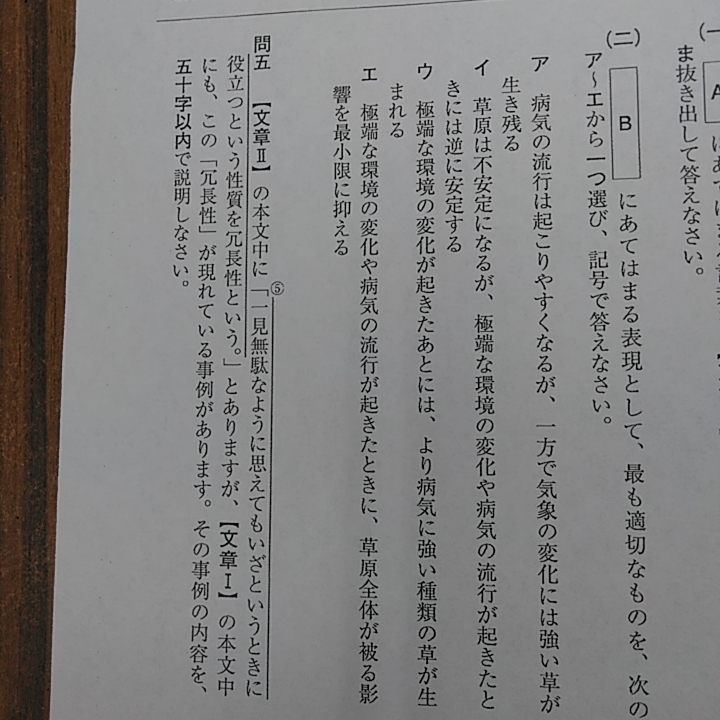 (一)
A
ま抜き出して答えなさい。
(二) B にあてはまる表現として、最も適切なものを、次の
ア〜エから一つ選び、記号で答えなさい。
ア 病気の流行は起こりやすくなるが、一方で気象の変化には強い草が
生き残る
イ 草原は不安定になるが、極端な環境の変化や病気の流行が起きたと
きには逆に安定する
ウ 極端な環境の変化が起きたあとには、より病気に強い種類の草が生
まれる
エ 極端な環境の変化や病気の流行が起きたときに、草原全体が被る影
響を最小限に抑える
問五 【文章Ⅱ】の本文中に「⑤一見無駄なように思えてもいざというときに
役立つという性質を冗長性という。」とありますが、【文章Ⅰ】の本文中
にも、この「冗長性」が現れている事例があります。その事例の内容を、
五十字以内で説明しなさい。